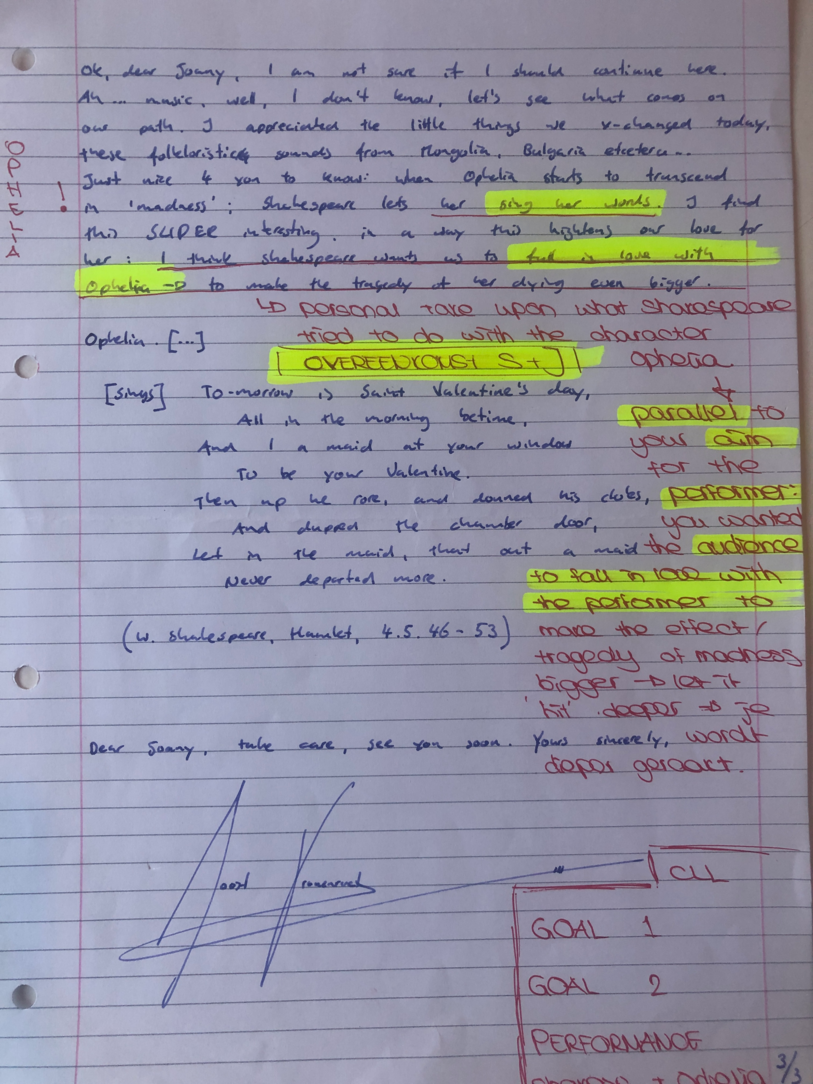 OPHELIA !
Ok, dear Joany, I am not sure if I should continue here.
Ah... music, well, I don't know, let's see what comes on
our path. I appreciated the little things we x-changed today,
these folkloristic sounds from Mongolia, Bulgaria etcetera...
Just nice 4 you to know: when Ophelia starts to transcend
in 'madness': Shakespeare lets her sing her words. I find
this SUPER interesting. in a way this hightens our love for
her: I think Shakespeare wants us to fall in love with
Ophelia → to make the tragedy of her dying even bigger.
↳ personal take upon what sharespeare
tried to do with the character
Ophelia
Ophelia. [...]
[OVEREENKOMST S+J]
[sings] To-morrow is Saint Valentine's day,
All in the morning betime,
And I a maid at your window
To be your Valentine.
Then up he rose, and donned his clothes,
And dupped the chamber door,
Let in the maid, that out a maid
Never departed more.
(W. Shakespeare, Hamlet, 4.5.46-53)
↓
parallel to
your aim
for the
performer:
you wanted
the audience
to fall in love with
the performer to
make the effect/
tragedy of madness
bigger → let it
'hit' deeper → je
wordt
dieper geraakt.
Dear Joany, take care, see you soon. Yours sincerely,
Joost
CLL
GOAL 1
GOAL 2
PERFORMANCE
3/3